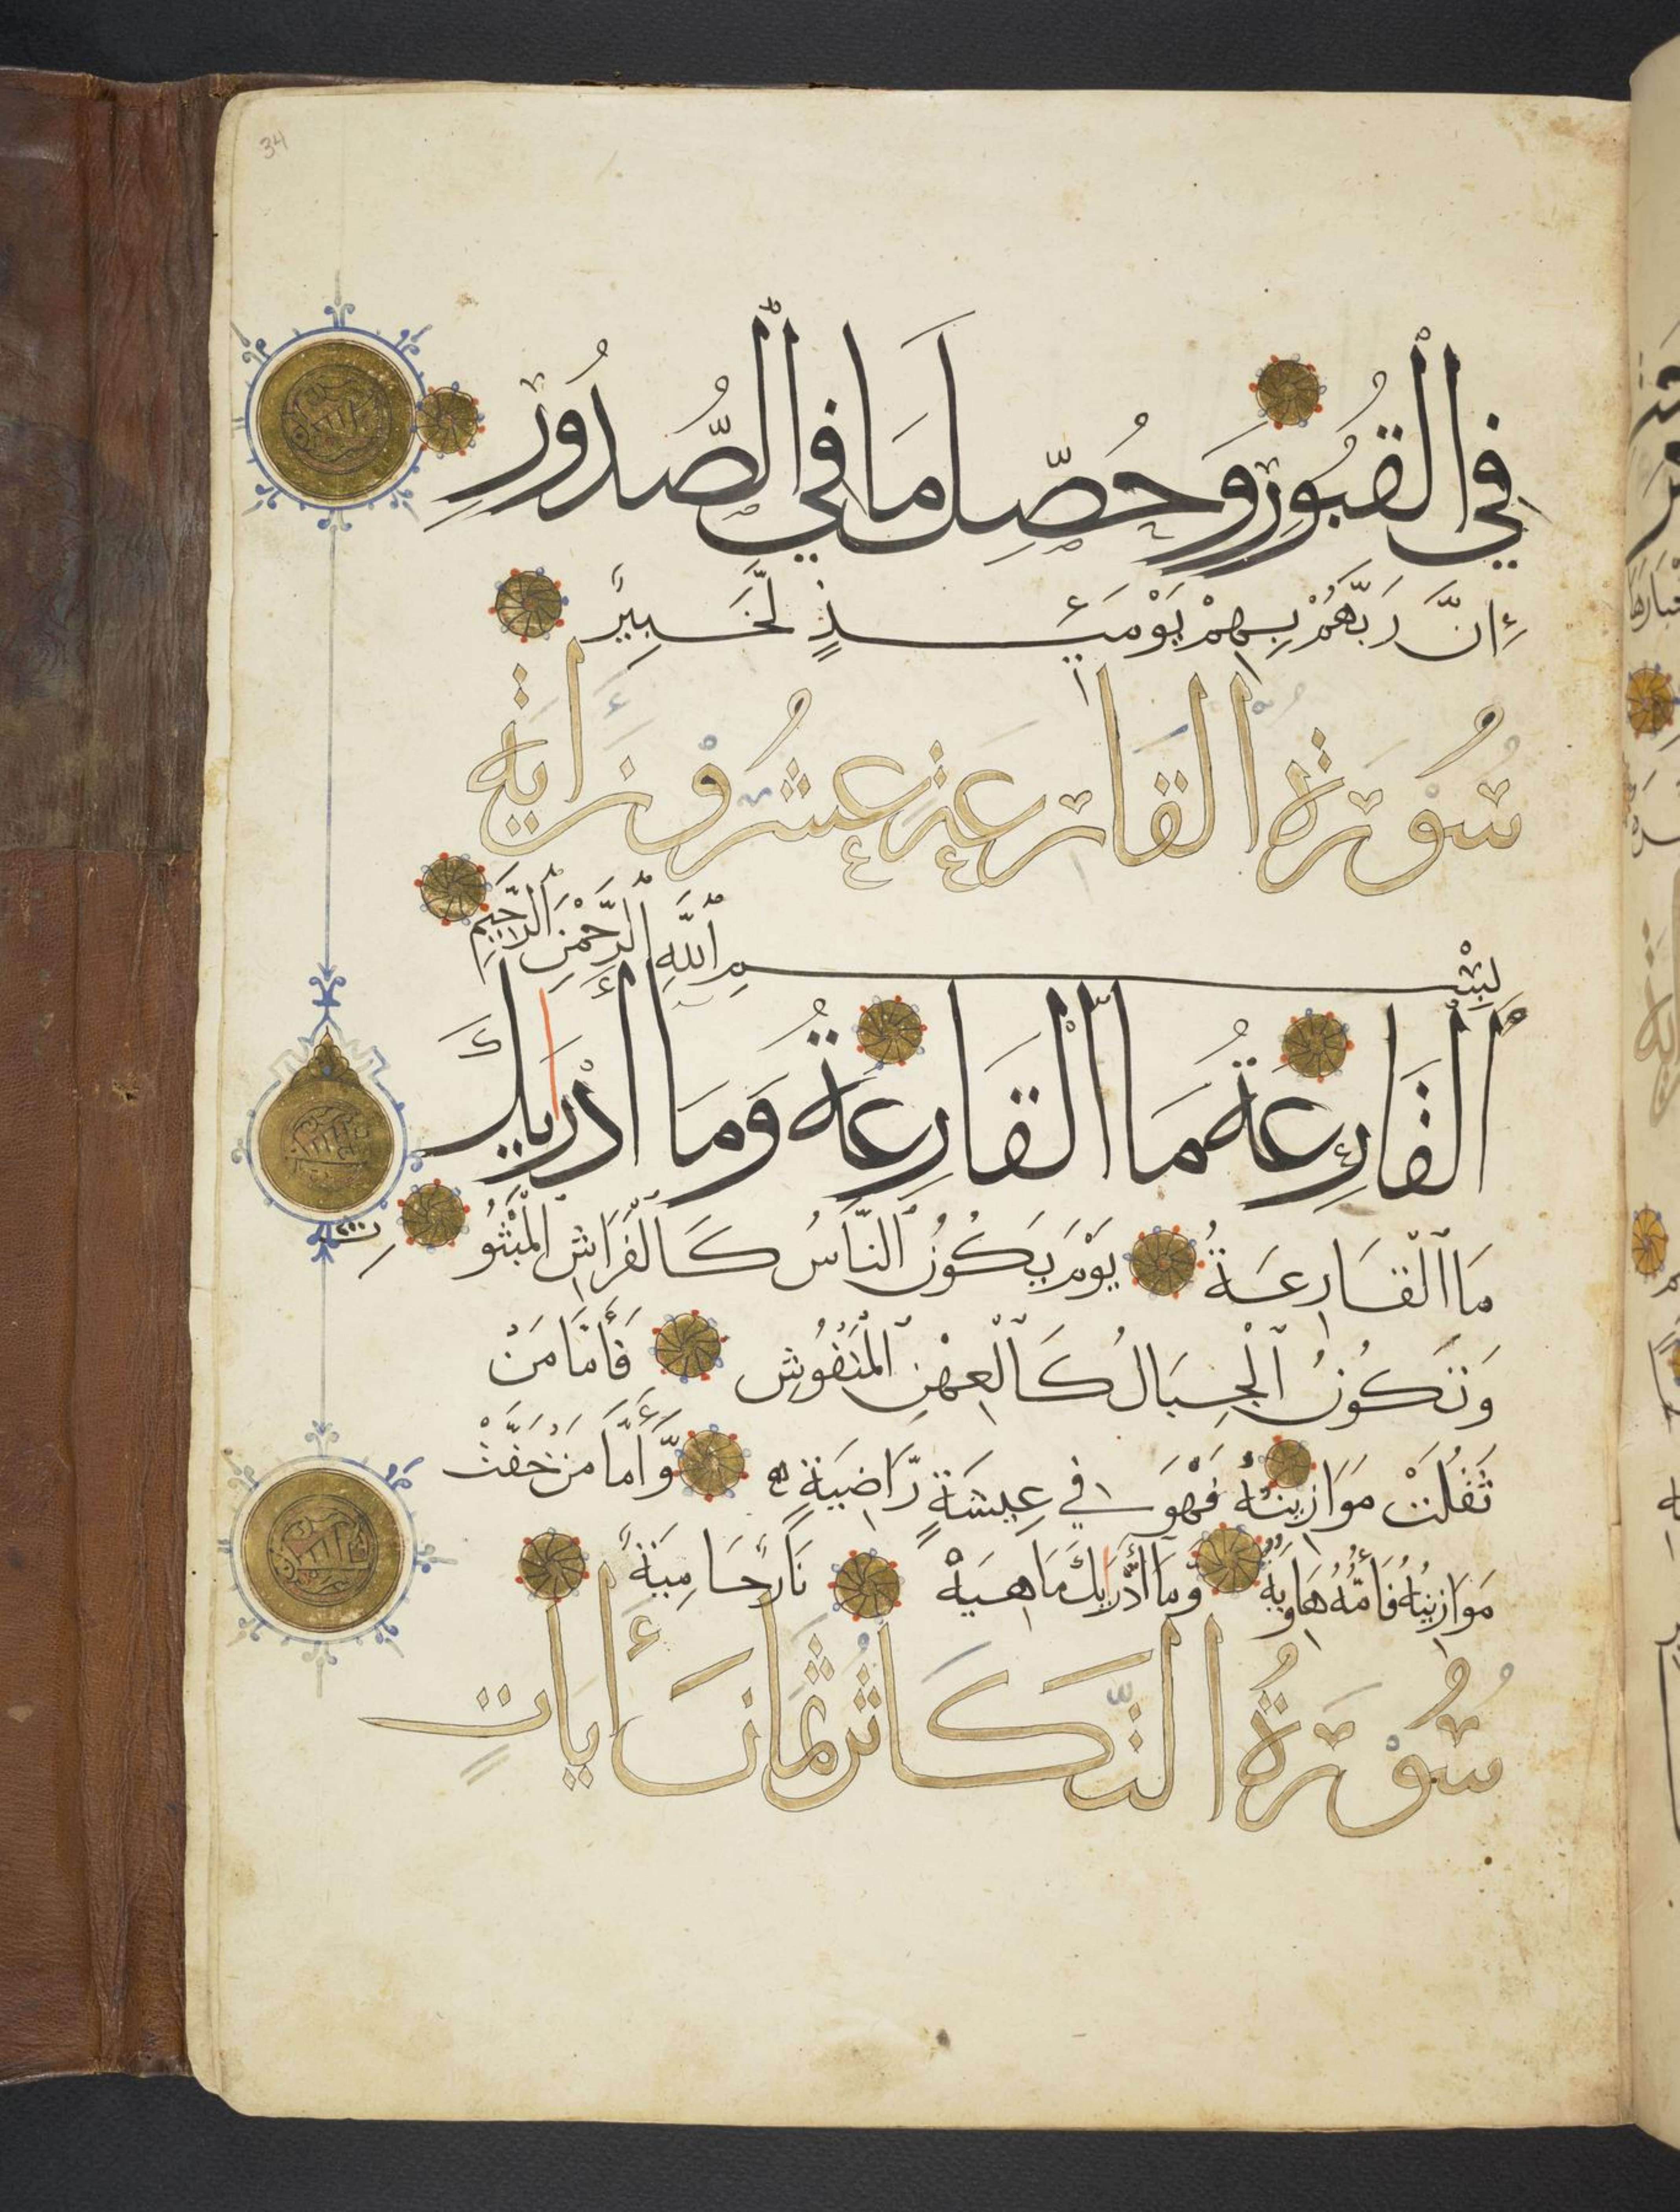 34
فِي الْقُبُورِ وَحُصِّلَ مَا فِي الصُّدُورِ
إِنَّ رَبَّهُمْ بِهِمْ يَوْمَئِذٍ لَّخَبِيرٌ
سُورَةُ الْقَارِعَةِ عَشْرُ وَنَ اٰيَة
بِسْمِ اللَّهِ الرَّحْمٰنِ الرَّحِيمِ
الْقَارِعَةُ مَا الْقَارِعَةُ وَمَا أَدْرَيٰكَ
مَا الْقَارِعَةُ يَوْمَ يَكُونُ النَّاسُ كَالْفَرَاشِ الْمَبْثُو
ثِ
وَتَكُونُ الْجِبَالُ كَالْعِهْنِ الْمَنْفُوشِ فَأَمَّا مَنْ
ثَقُلَتْ مَوَازِينُهُ فَهْوَ فِي عِيشَةٍ رَّاضِيَةٍ وَّأَمَّا مَنْ خَفَّتْ
مَوَازِينُهُ فَأُمُّهُ هَاوِيَةٌ وَمَا أَدْرَيٰكَ مَا هِيَهْ نَارٌ حَامِيَةٌ
سُورَةُ التَّكَاثُرِ ثَمَانَ أٰيَاتٍ